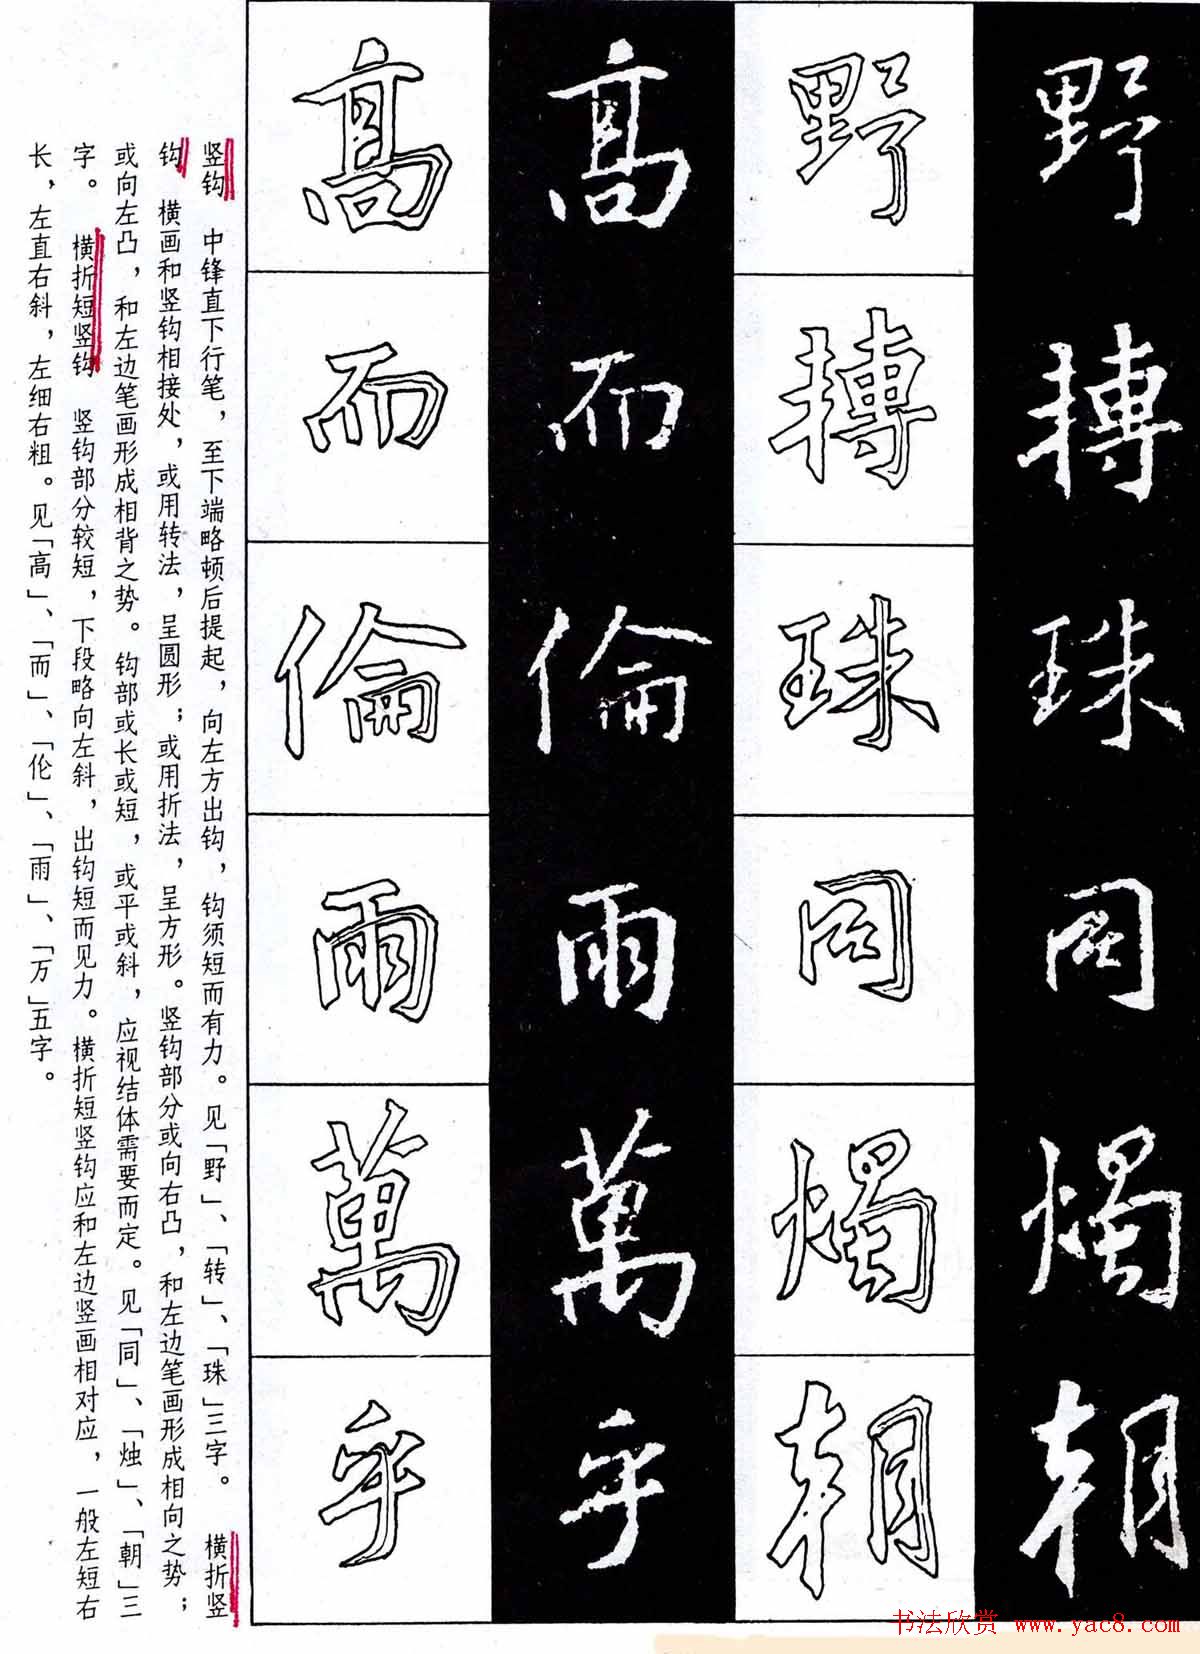 野搏珠同燭朝
野搏珠同燭朝
高而倫雨萬乎
高而倫雨萬乎
竖钩 中锋直下行笔，至下端略顿后提起，向左方出钩，钩须短而有力。见「野」、「转」、「珠」三字。 横折竖
钩 横画和竖钩相接处，或用转法，呈圆形；或用折法，呈方形。竖钩部分或向右凸，和左边笔画形成相向之势；
或向左凸，和左边笔画形成相背之势。钩部或长或短，或平或斜，应视结体需要而定。见「同」、「烛」、「朝」三
字。 横折短竖钩 竖钩部分较短，下段略向左斜，出钩短而见力。横折短竖钩应和左边竖画相对应，一般左短右
长，左直右斜，左细右粗。见「高」、「而」、「伦」、「雨」、「万」五字。
书法欣赏 www.yac8.com